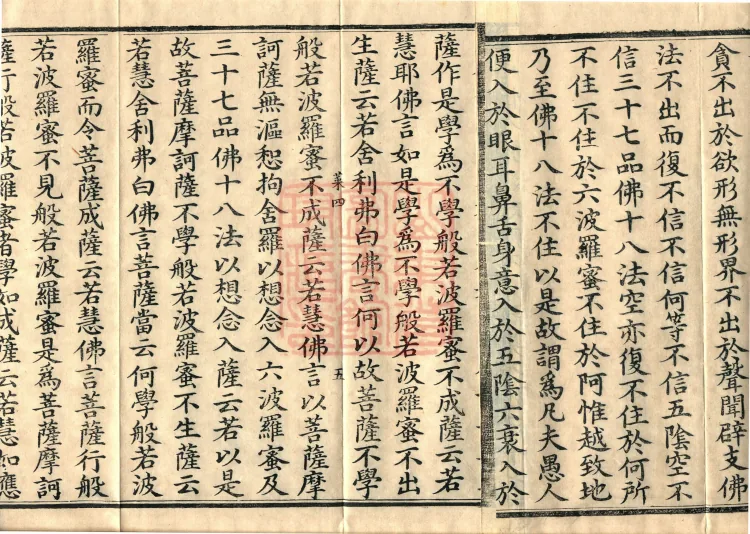 貪不出於欲形無形界不出於聲聞辟支佛
法不出而復不信不信何等不信五陰空不
信三十七品佛十八法空亦復不住於何所
不住不住於六波羅蜜不住於阿惟越致地
乃至佛十八法不住以是故謂為凡夫愚人
便入於眼耳鼻舌身意入於五陰六衰入於
薩作是學為不學般若波羅蜜不成薩云若
慧耶佛言如是學為不學般若波羅蜜不出
生薩云若舍利弗白佛言何以故菩薩不學
菜四 五
般若波羅蜜不成薩云若慧佛言以菩薩摩
訶薩無漚惒拘舍羅以想念入六波羅蜜及
三十七品佛十八法以想念入薩云若以是
故菩薩摩訶薩不學般若波羅蜜不生薩云
若慧舍利弗白佛言菩薩當云何學般若波
羅蜜而令菩薩成薩云若慧佛言菩薩行般
若波羅蜜不見般若波羅蜜是為菩薩摩訶
薩行般若波羅蜜者學如成薩云若慧如應